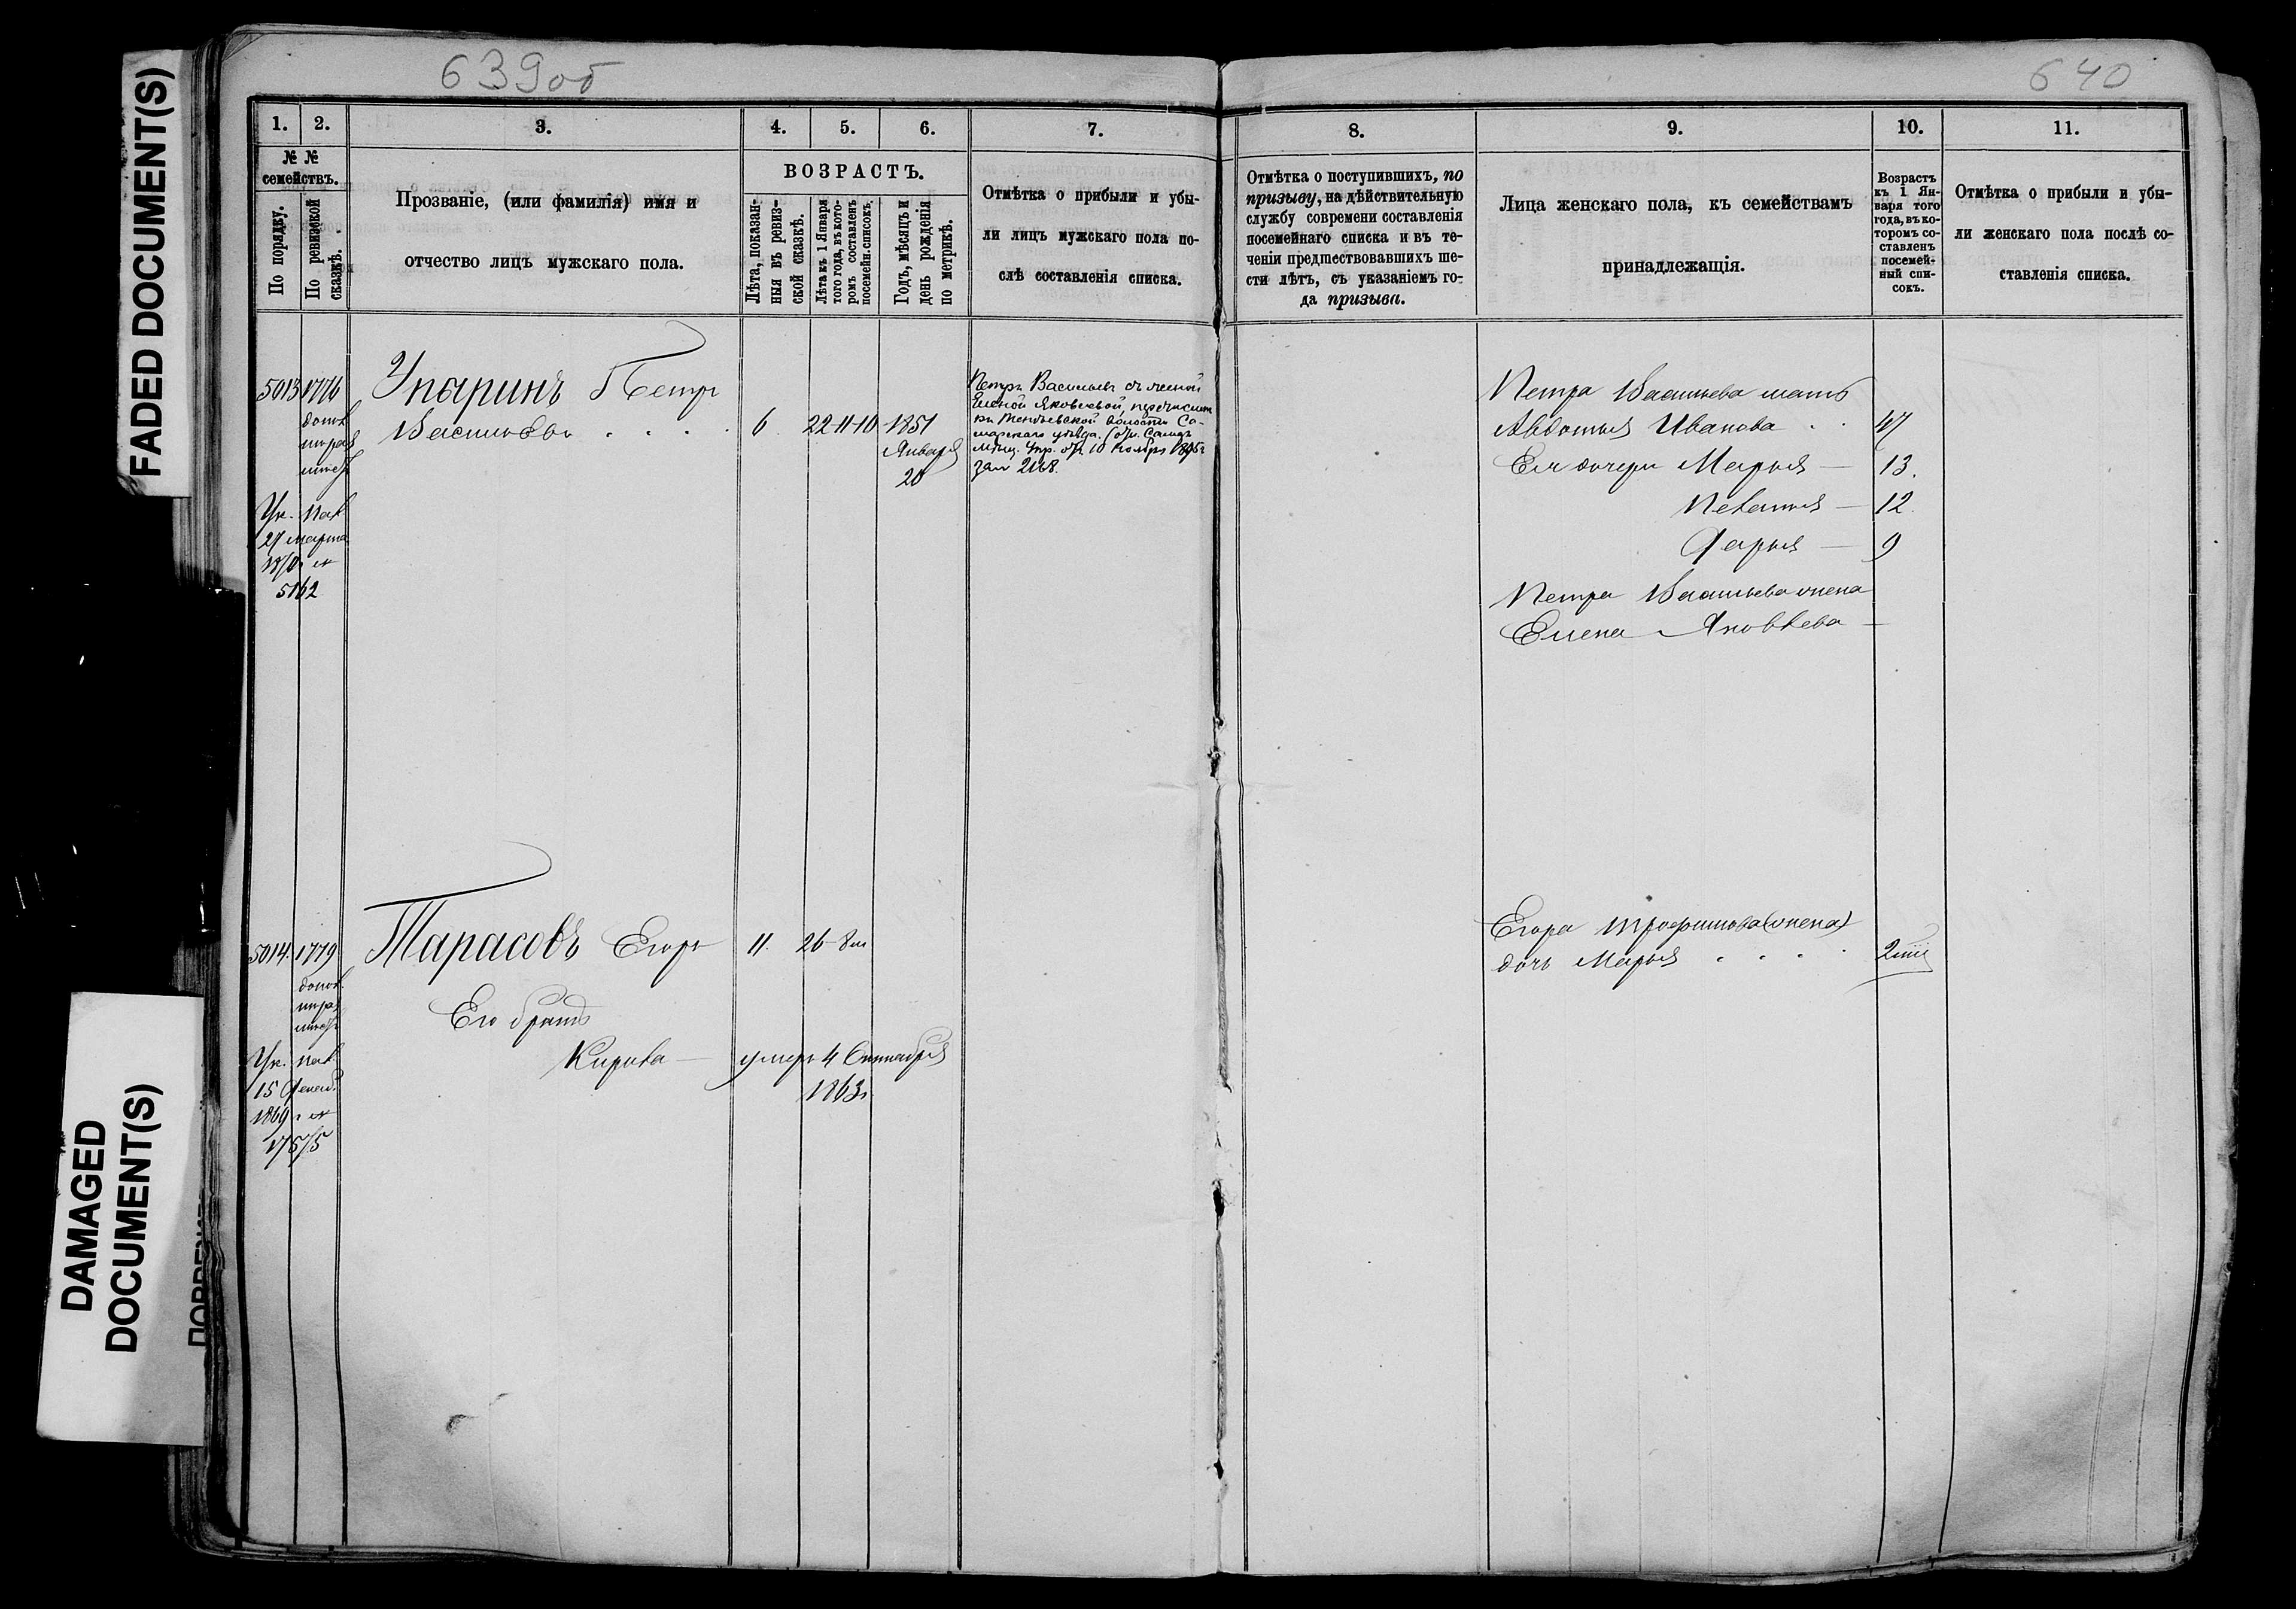 639об
640
FADED DOCUMENT(S)
DAMAGED
DOCUMENT(S)
1.
2.
3.
4.
5.
6.
7.
8.
9.
10.
11.
№ №
семействъ.
По порядку.
По ревизской
сказкѣ.
Прозваніе, (или фамилія) имя и
отчество лицъ мужскаго пола.
ВОЗРАСТЪ.
Лѣта, показан-
ныя въ ревиз-
ской сказкѣ.
Лѣта къ 1 Января
того года, въ кото-
ромъ составленъ
посемейн. списокъ.
Годъ, мѣсяцъ и
день рожденія
по метрикѣ.
Отмѣтка о прибыли и убы-
ли лицъ мужскаго пола по-
слѣ составленія списка.
Отмѣтка о поступившихъ, по
призыву, на дѣйствительную
службу современи составленія
посемейнаго списка и въ те-
ченіи предшествовавшихъ ше-
сти лѣтъ, съ указаніемъ го-
да призыва.
Лица женскаго пола, къ семействамъ
принадлежащія.
Возрастъ
къ 1 Ян-
варя того
года, въ ко-
торомъ со-
ставленъ
посемей-
ный спи-
сокъ.
Отмѣтка о прибыли и убы-
ли женскаго пола послѣ со-
ставленія списка.
5013 1776
Упаринъ Петръ
Васильевъ
6
22-11-10
1851
Января
20
Петръ Васильевъ съ женой
Еленой Яковлевой, перечислен
волости Са-
марскаго уѣзда.
10 Ноября
за № 2168.
Ук. Пал.
27 марта
5162
Петра Васильева мать
Авдотья Иванова
47
Ея дочери Марья — 13.
12.
Дарья — 9
Петра Васильева жена
Елена Яковлева —
5014. 1779
Тарасовъ Егоръ
11.
26
Его братъ
Кирила — умеръ 4 Сентября
1863г.
Ук. пал.
15
1869 г. №
Егора Трофимова (жена)
дочь Марья